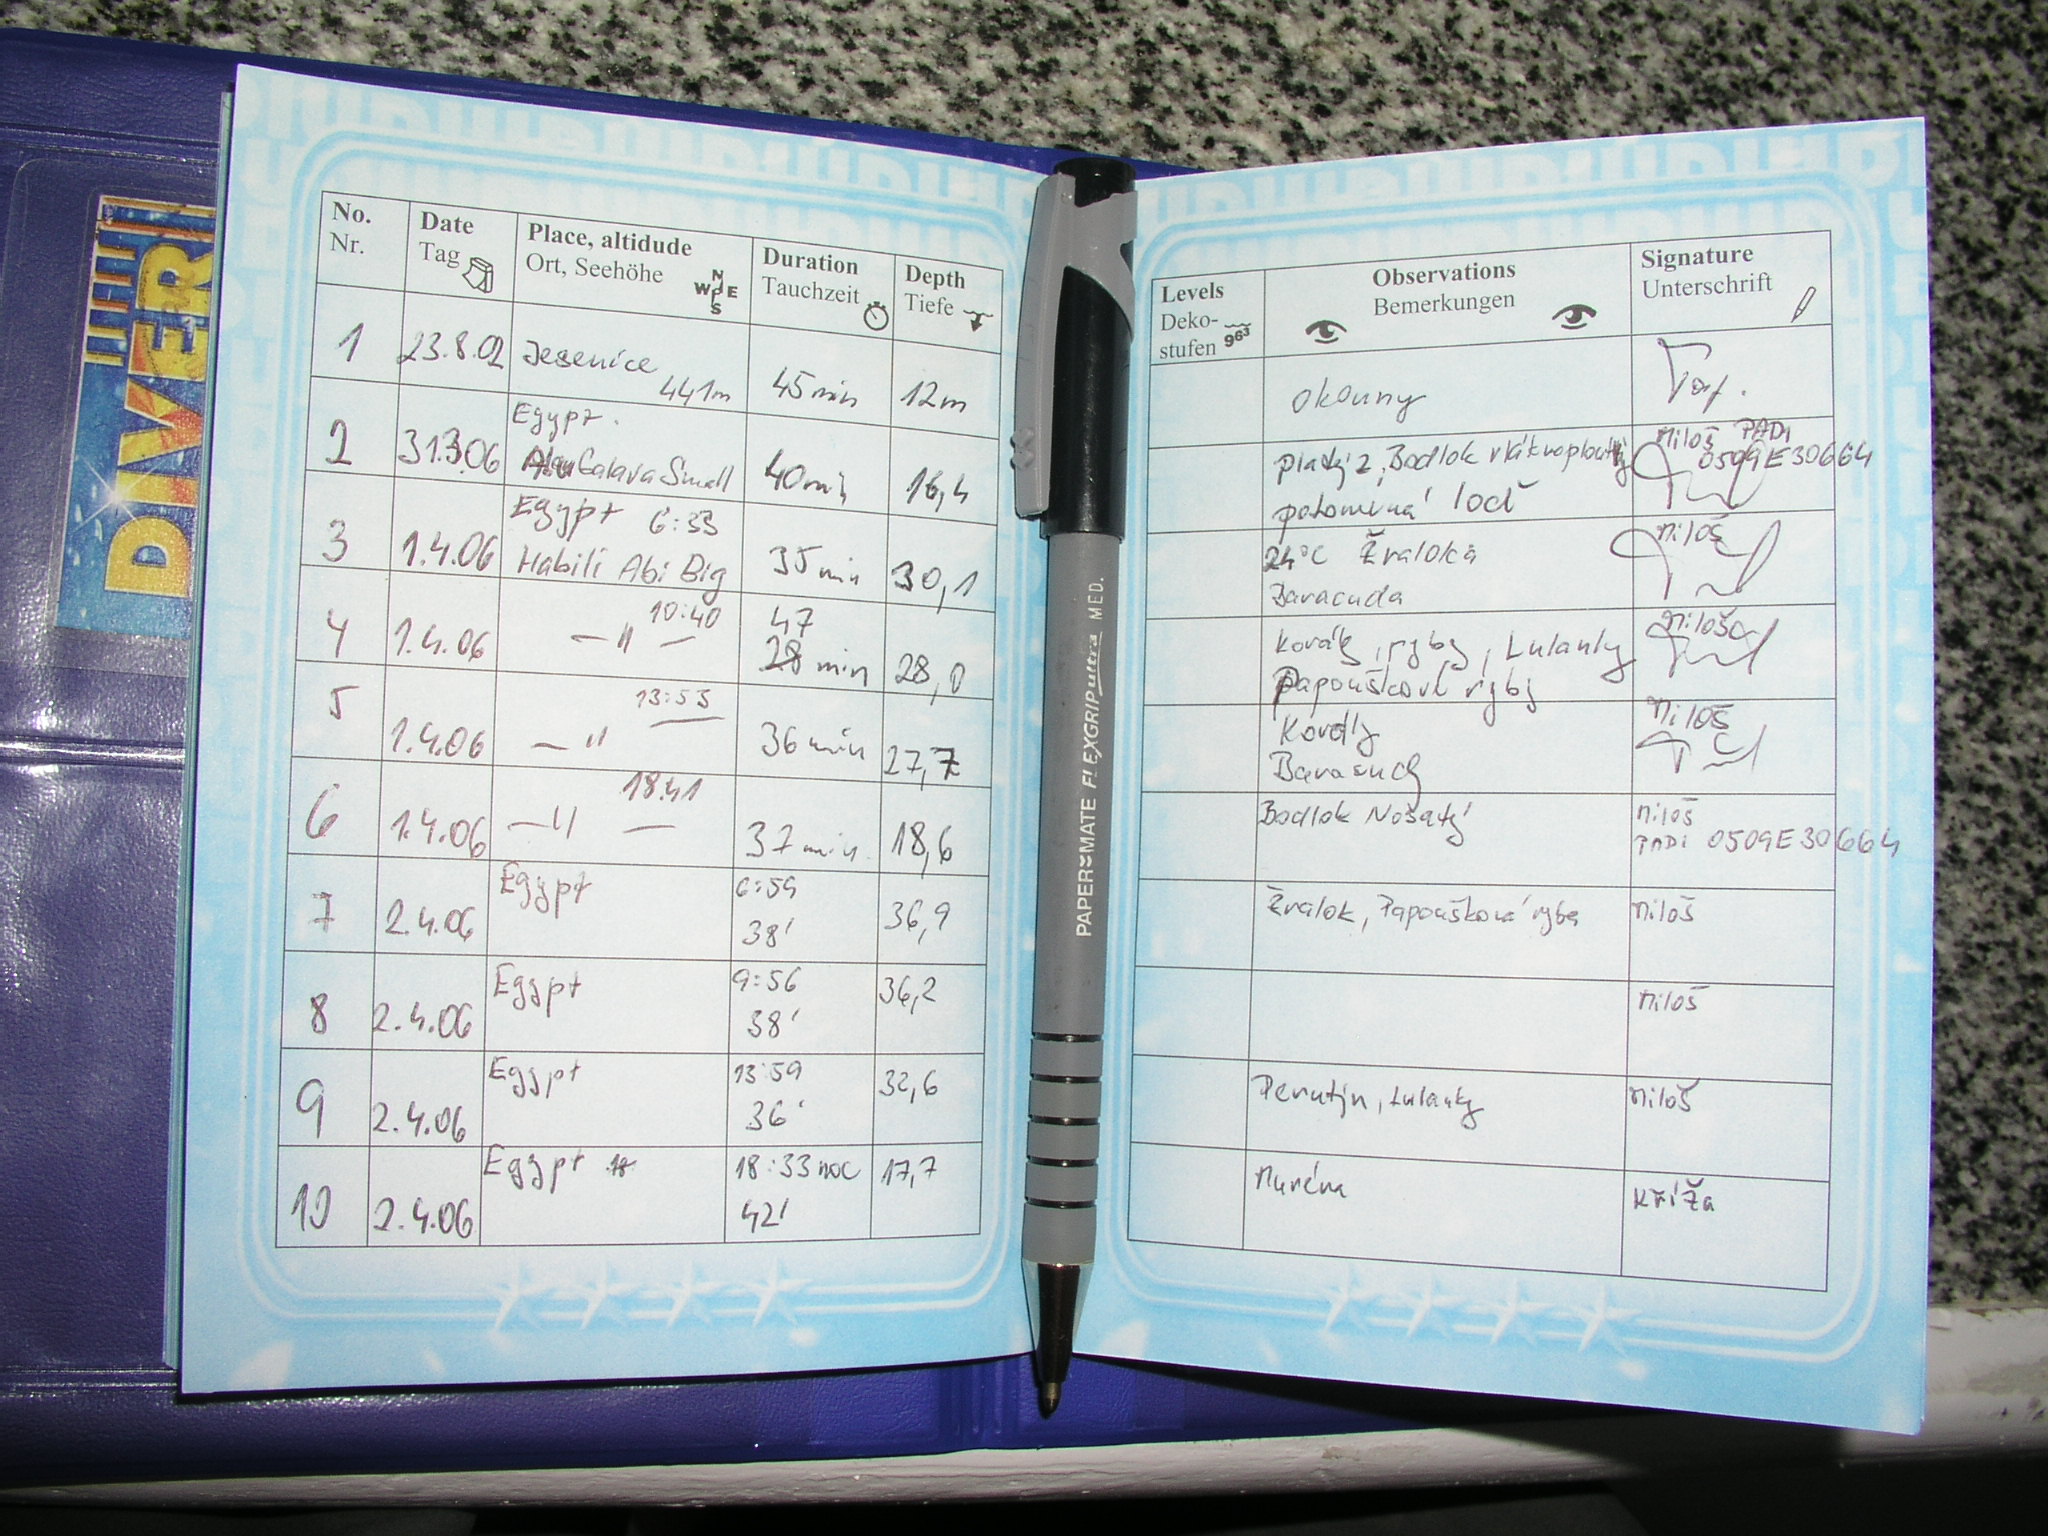 DIVER
No.
Nr.
Date
Tag
Place, altidude
Ort, Seehöhe
N
W E
S
Duration
Tauchzeit
Depth
Tiefe
1
23.8.02
Jesenice
441m
45min
12m
2
31.3.06
Egypt.
Galava Small
40min
16,4
3
1.4.06
Egypt 6:33
Habili Abi Big
35 min
30,1
4
1.4.06
10:40
— " —
47
28 min
28,0
5
1.4.06
13:53
— " —
36 min
27,7
6
1.4.06
18:41
— " —
37 min.
18,6
7
2.4.06
Egypt
6:59
38'
36,9
8
2.4.06
Egypt
9:56
38'
36,2
9
2.4.06
Egypt
13:59
36'
32,6
10
2.4.06
Egypt 18
18:33 noc
42'
17,7
PAPER MATE FLEXGRIP ultra MED.
Levels
Deko-
stufen
963
Observations
Bemerkungen
Signature
Unterschrift
okouny
Bodlok vláknoploutvý
ponorná loď
Miloš PADI
0509E30664
24°C Žraloka
Baracuda
Miloš
Korály, ryby, Lulanky
Papouškové ryby
Miloš
Korály
Barakudy
Miloš
Bodlok Nosatý
Miloš
PADI 0509E30664
Žralok, Papoušková ryba
Miloš
Miloš
Perutýn, Lulanky
Miloš
Muréna
Kříža